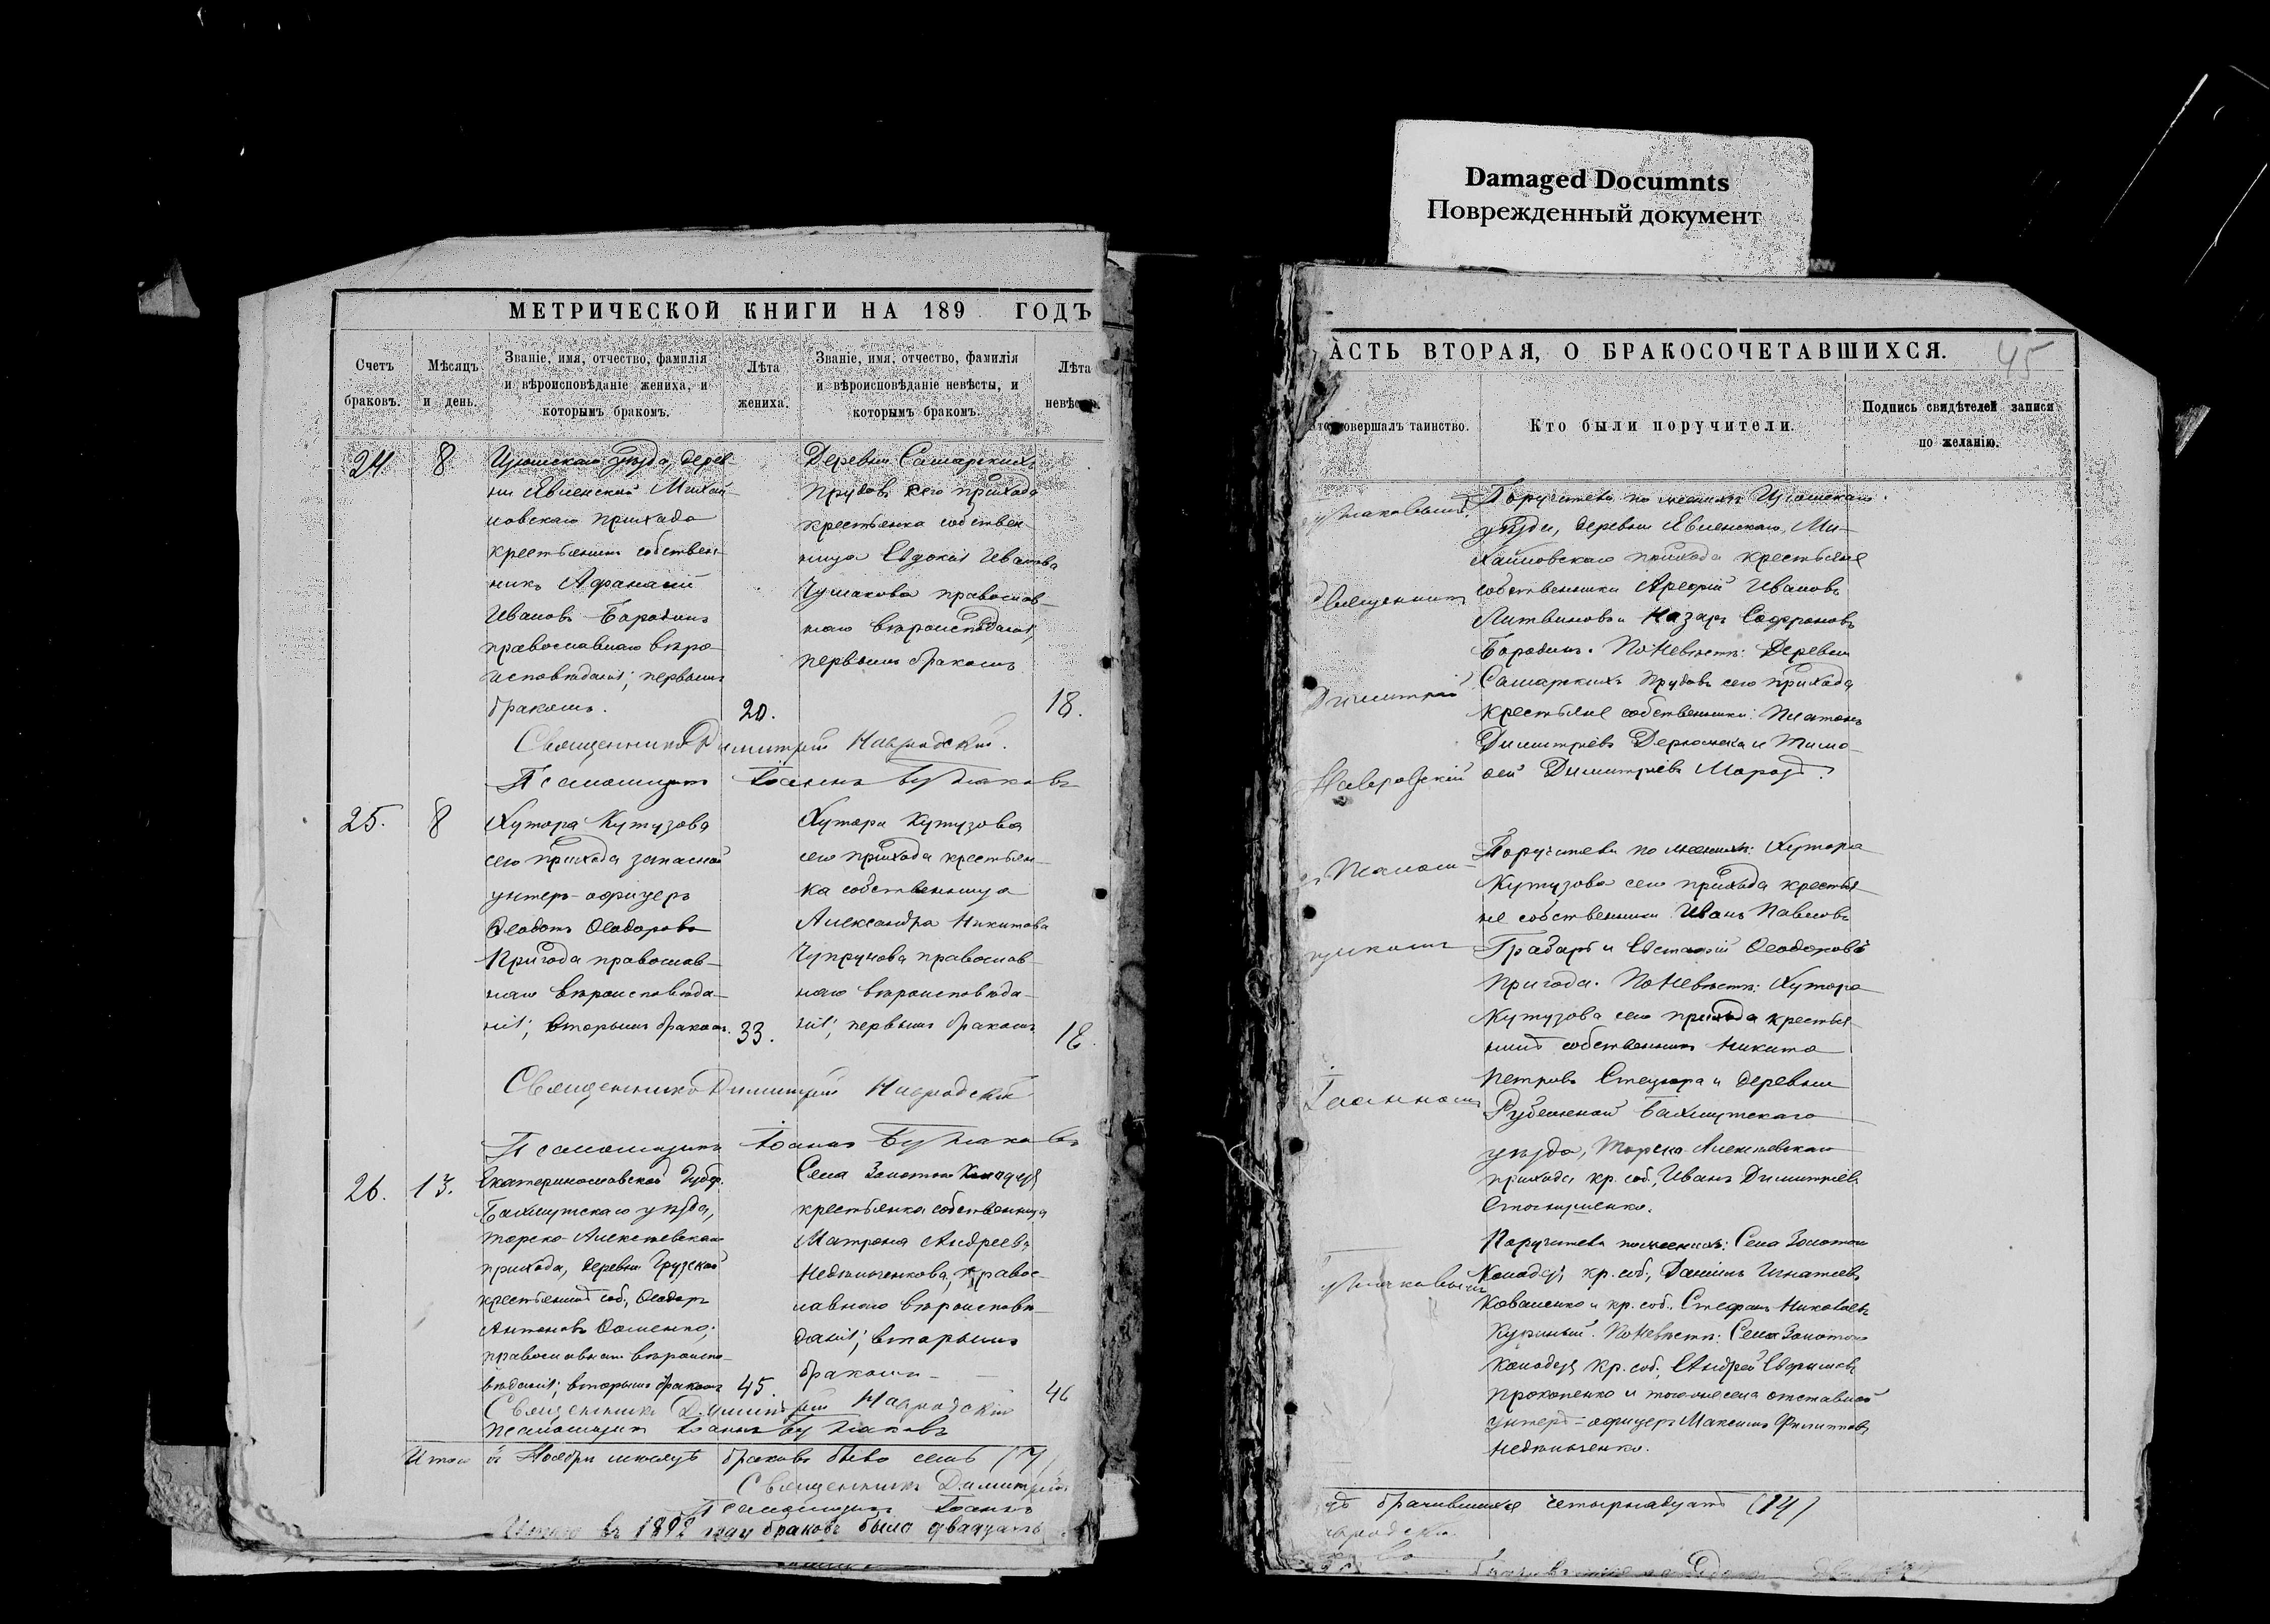 Damaged Documnts
Поврежденный документ
МЕТРИЧЕСКОЙ КНИГИ НА 189 ГОДЪ
Счетъ браковъ.
Мѣсяцъ и день.
Званіе, имя, отчество, фамилія
и вѣроисповѣданіе жениха, и
которымъ бракомъ.
Лѣта
жениха.
Званіе, имя, отчество, фамилія
и вѣроисповѣданіе невѣсты, и
которымъ бракомъ.
Лѣта
24 8
Изюмскаго уѣзда, дерев-
ни Явленской Михай-
ловскаго прихода
крестьянинъ собствен-
никъ Афанасій
Ивановъ Бородинъ
православнаго вѣро-
исповѣданія; первымъ
бракомъ.
20.
Деревни Самарскихъ
Прудовъ сего прихода
крестьянка собствен-
ница Евдокія Иванова
Чумакова православ-
наго вѣроисповѣданія,
первымъ бракомъ
18.
Священникъ Димитрій Навродскій.
Псаломщикъ Іоаннъ
25. 8
Хутора Кутузова
сего прихода запасной
унтеръ-офицеръ
Ѳеодотъ Ѳеодоровъ
Пригода православ-
наго вѣроисповѣда-
нія; вторымъ бракомъ.
33.
Хутора Кутузова
сего прихода крестьян-
ка собственница
Александра Никитова
Чупрунова православ-
наго вѣроисповѣда-
нія; первымъ бракомъ
18.
Священникъ Димитрій Навродскій
Псаломщикъ Іоаннъ
26. 13.
Екатеринославской Губер.
Бахмутскаго уѣзда,
Торско-Алексѣевскаго
прихода, деревни Грузской
крестьянинъ соб., Ѳеодоръ
Антоновъ
православнаго вѣроиспо-
вѣданія; вторымъ бракомъ
45.
Села Золотого Колодезя
крестьянка собственница
Матрона Андреева
Недѣльченкова, правос-
лавнаго вѣроисповѣ-
данія; вторымъ
бракомъ
46
Священникъ Димитрій Навродскій
Псаломщикъ Іоаннъ
Итого въ Ноябрѣ мѣсяцѣ браковъ было семь (7)
Священникъ Димитрій
Псаломщикъ Іоаннъ
Итого въ 1892 году браковъ было двадцать
АСТЬ ВТОРАЯ, О БРАКОСОЧЕТАВШИХСЯ.
45
совершалъ таинство.
Кто были поручители.
Подпись свидѣтелей записи
по желанію.
Священникъ
Димитрій
Навродскій
Поручители по женихѣ Изюмскаго
уѣзда, деревни Явленской, Ми-
хайловскаго прихода крестьяне
собственники Арефій Ивановъ
Литвиновъ и Назаръ Софроновъ
Бородинъ. По Невѣстѣ: Деревни
Самарскихъ Прудовъ сего прихода
крестьяне собственники: Платонъ
Димитріевъ Дерюшка и Тимо-
ѳей Димитріевъ Мороз
Іоанномъ
Поручители по женихѣ: Хутора
Кутузова сего прихода крестья-
не собственники Иванъ Павловъ
Грабарь и Евстафій Ѳеодоровъ
Пригода. По Невѣстѣ: Хутора
Кутузова сего прихода крестья-
нинъ собственникъ Никита
Петровъ Стецюра и деревни
Рубленной Бахмутскаго
уѣзда, Торско-Алексѣевскаго
прихода кр. соб., Иванъ Димитріевъ
Поручители по женихѣ: Села Золотого
Колодезя, кр. соб., Даніилъ Игнатіевъ
Коваленко и кр. соб. Стефанъ Николаевъ
По Невѣстѣ: Села Золотого
Колодезя кр. соб., Андрей
Прокопенко и того же села отставной
унтеръ-офицеръ Максимъ Филипповъ
Недѣльченко.
брачившихся четырнадцать (14)